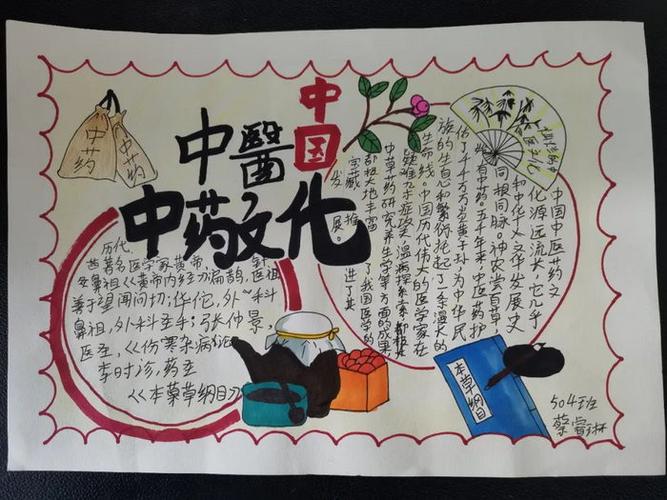 中国
中醫
中药文化
中药
中药
历代,
西著名医学家黄帝,
鼻祖《黄帝内经》扁鹊,
善于望闻问切,华佗,外~科
鼻祖,外科圣手;张仲景
医圣,《伤寒杂病论
李时诊,药圣
《本藥草纲目》
中国中医药文
化源远流长,它几乎
和中华人文华发展史
同根同脉。神农尝百草
始有中药。五千年来,中医药护
佑了千千万万炎黄子孙,为中华民
族的生息和繁衍托起了一条温大的
生命线。中国历代伟大的医学家在
疑难杂症攻
中草药研究养生学等方面的成果
都极大地丰富了我国医学的
宝藏,推进了其
发展。
本草纲目
504班
蔡睿琳